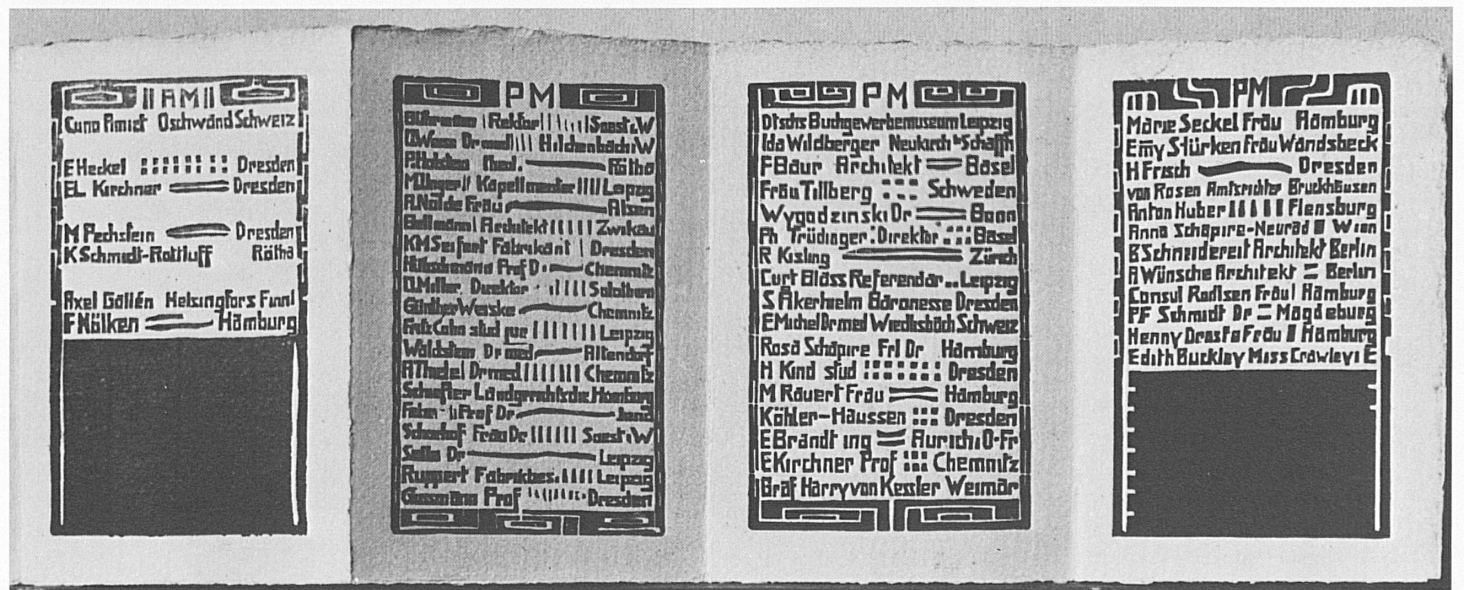 AM
Cuno Amiet Oschwand Schweiz
E Heckel Dresden
EL Kirchner Dresden
M Pechstein Dresden
K Schmidt-Rottluff Rötha
Axel Gallén Helsingfors Finnl
F Nölken Hamburg
PM
Rektor Soest i W
Dr med Hilchenbach i W
Rötha
Kapellmeister Leipzig
A Nolde Frau Alsen
Architekt Zwickau
KM Seifert Fabrikant Dresden
Prof D Chemnitz
O Miller Direktor
Günther Werske Chemnitz
Fritz Cohn stud jur Leipzig
Waldstein Dr med Altendorf
A Thiele Dr med Chemnitz
Schiefler Landgerichtsdir Hamburg
Prof Dr Jena
Frau Dr Soest i W
Dr Leipzig
Ruppert Fabrikbes Leipzig
Prof Dresden
PM
Dtschs Buchgewerbemuseum Leipzig
Ida Wildberger Neukirch Schaffh
F Baur Architekt Basel
Frau Tillberg Schweden
Wygodzinski Dr Bonn
Ph Trüdinger Direktor Basel
R Kisling Zürich
Curt Blass Referendar Leipzig
S Åkerhielm Baronesse Dresden
E Michel Dr med Wiedlisbach Schweiz
Rosa Schapire Frl Dr Hamburg
H Kind stud Dresden
M Rauert Frau Hamburg
Köhler-Haussen Dresden
E Brandt ing Aurich i O-Fr
E Kirchner Prof Chemnitz
Graf Harry von Kessler Weimar
PM
Marie Seckel Frau Hamburg
Emy Stürken Frau Wandsbeck
H Frisch Dresden
von Rosen Amtsrichter Bruckhausen
Anton Huber Flensburg
Anna Schapire-Neurad Wien
B Schneidereit Architekt Berlin
A Wünsche Architekt Berlin
Consul Radisen Fräul Hamburg
PF Schmidt Dr Magdeburg
Henny Frau Hamburg
Edith Buckley Miss Crawley i E